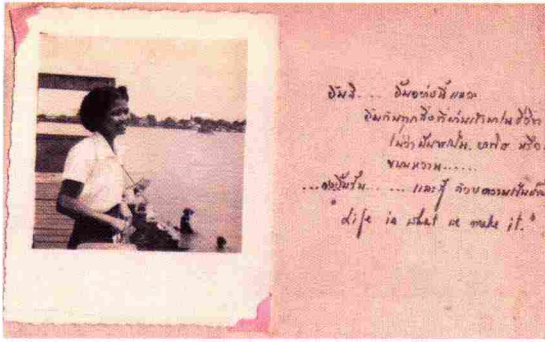 ยิ้มสิ.... ยิ้มอย่างนี้แหละ
ยิ้มกับทุกสิ่งที่ผ่านเข้ามาในชีวิต
ไม่ว่ามันจะเป็น
ขมหวาน......
.... และสู้ ด้วยความเข้มแข็ง
"Life is what we make it."